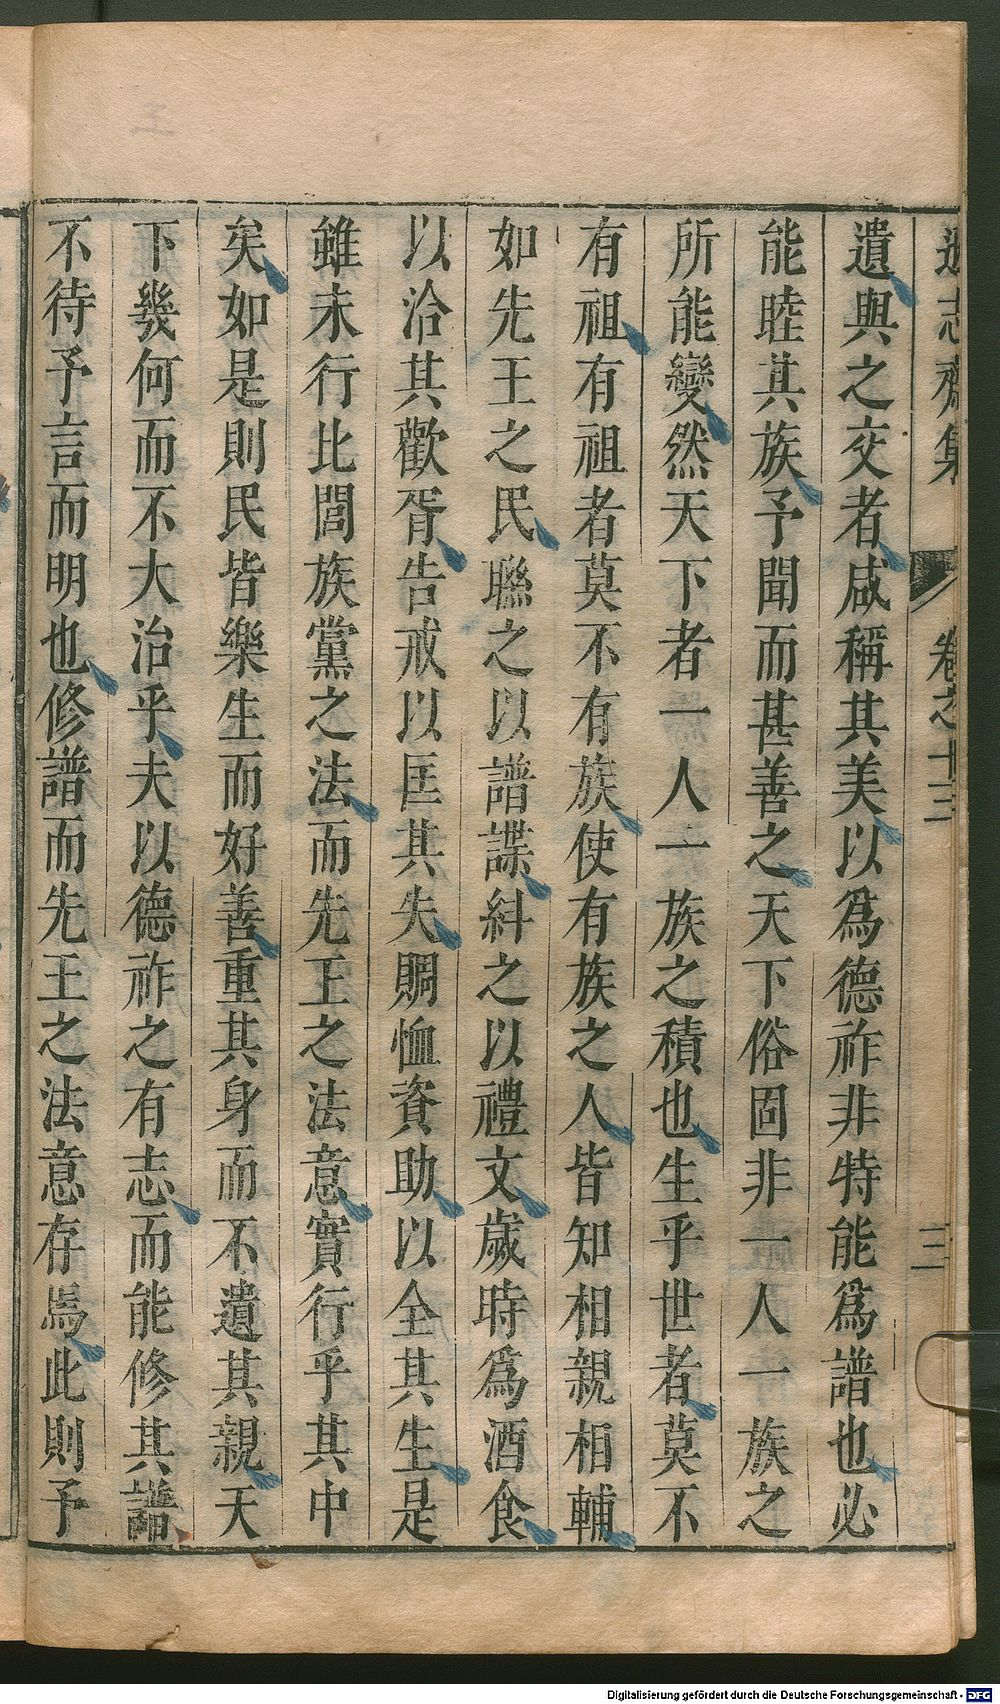 遜志齋集 卷之十三 三
遺與之交者咸稱其美以爲德祚非特能爲譜也必
能睦其族予聞而甚善之天下俗固非一人一族之
所能變然天下者一人一族之積也生乎世者莫不
有祖有祖者莫不有族使有族之人皆知相親相輔
如先王之民聯之以譜諜糾之以禮文歲時爲酒食
以洽其歡胥告戒以匡其失賙恤資助以全其生是
雖未行比閭族黨之法而先王之法意實行乎其中
矣如是則民皆樂生而好善重其身而不遺其親天
下幾何而不大治乎夫以德祚之有志而能修其譜
不待予言而明也修譜而先王之法意存焉此則予
Digitalisierung gefördert durch die Deutsche Forschungsgemeinschaft - DFG